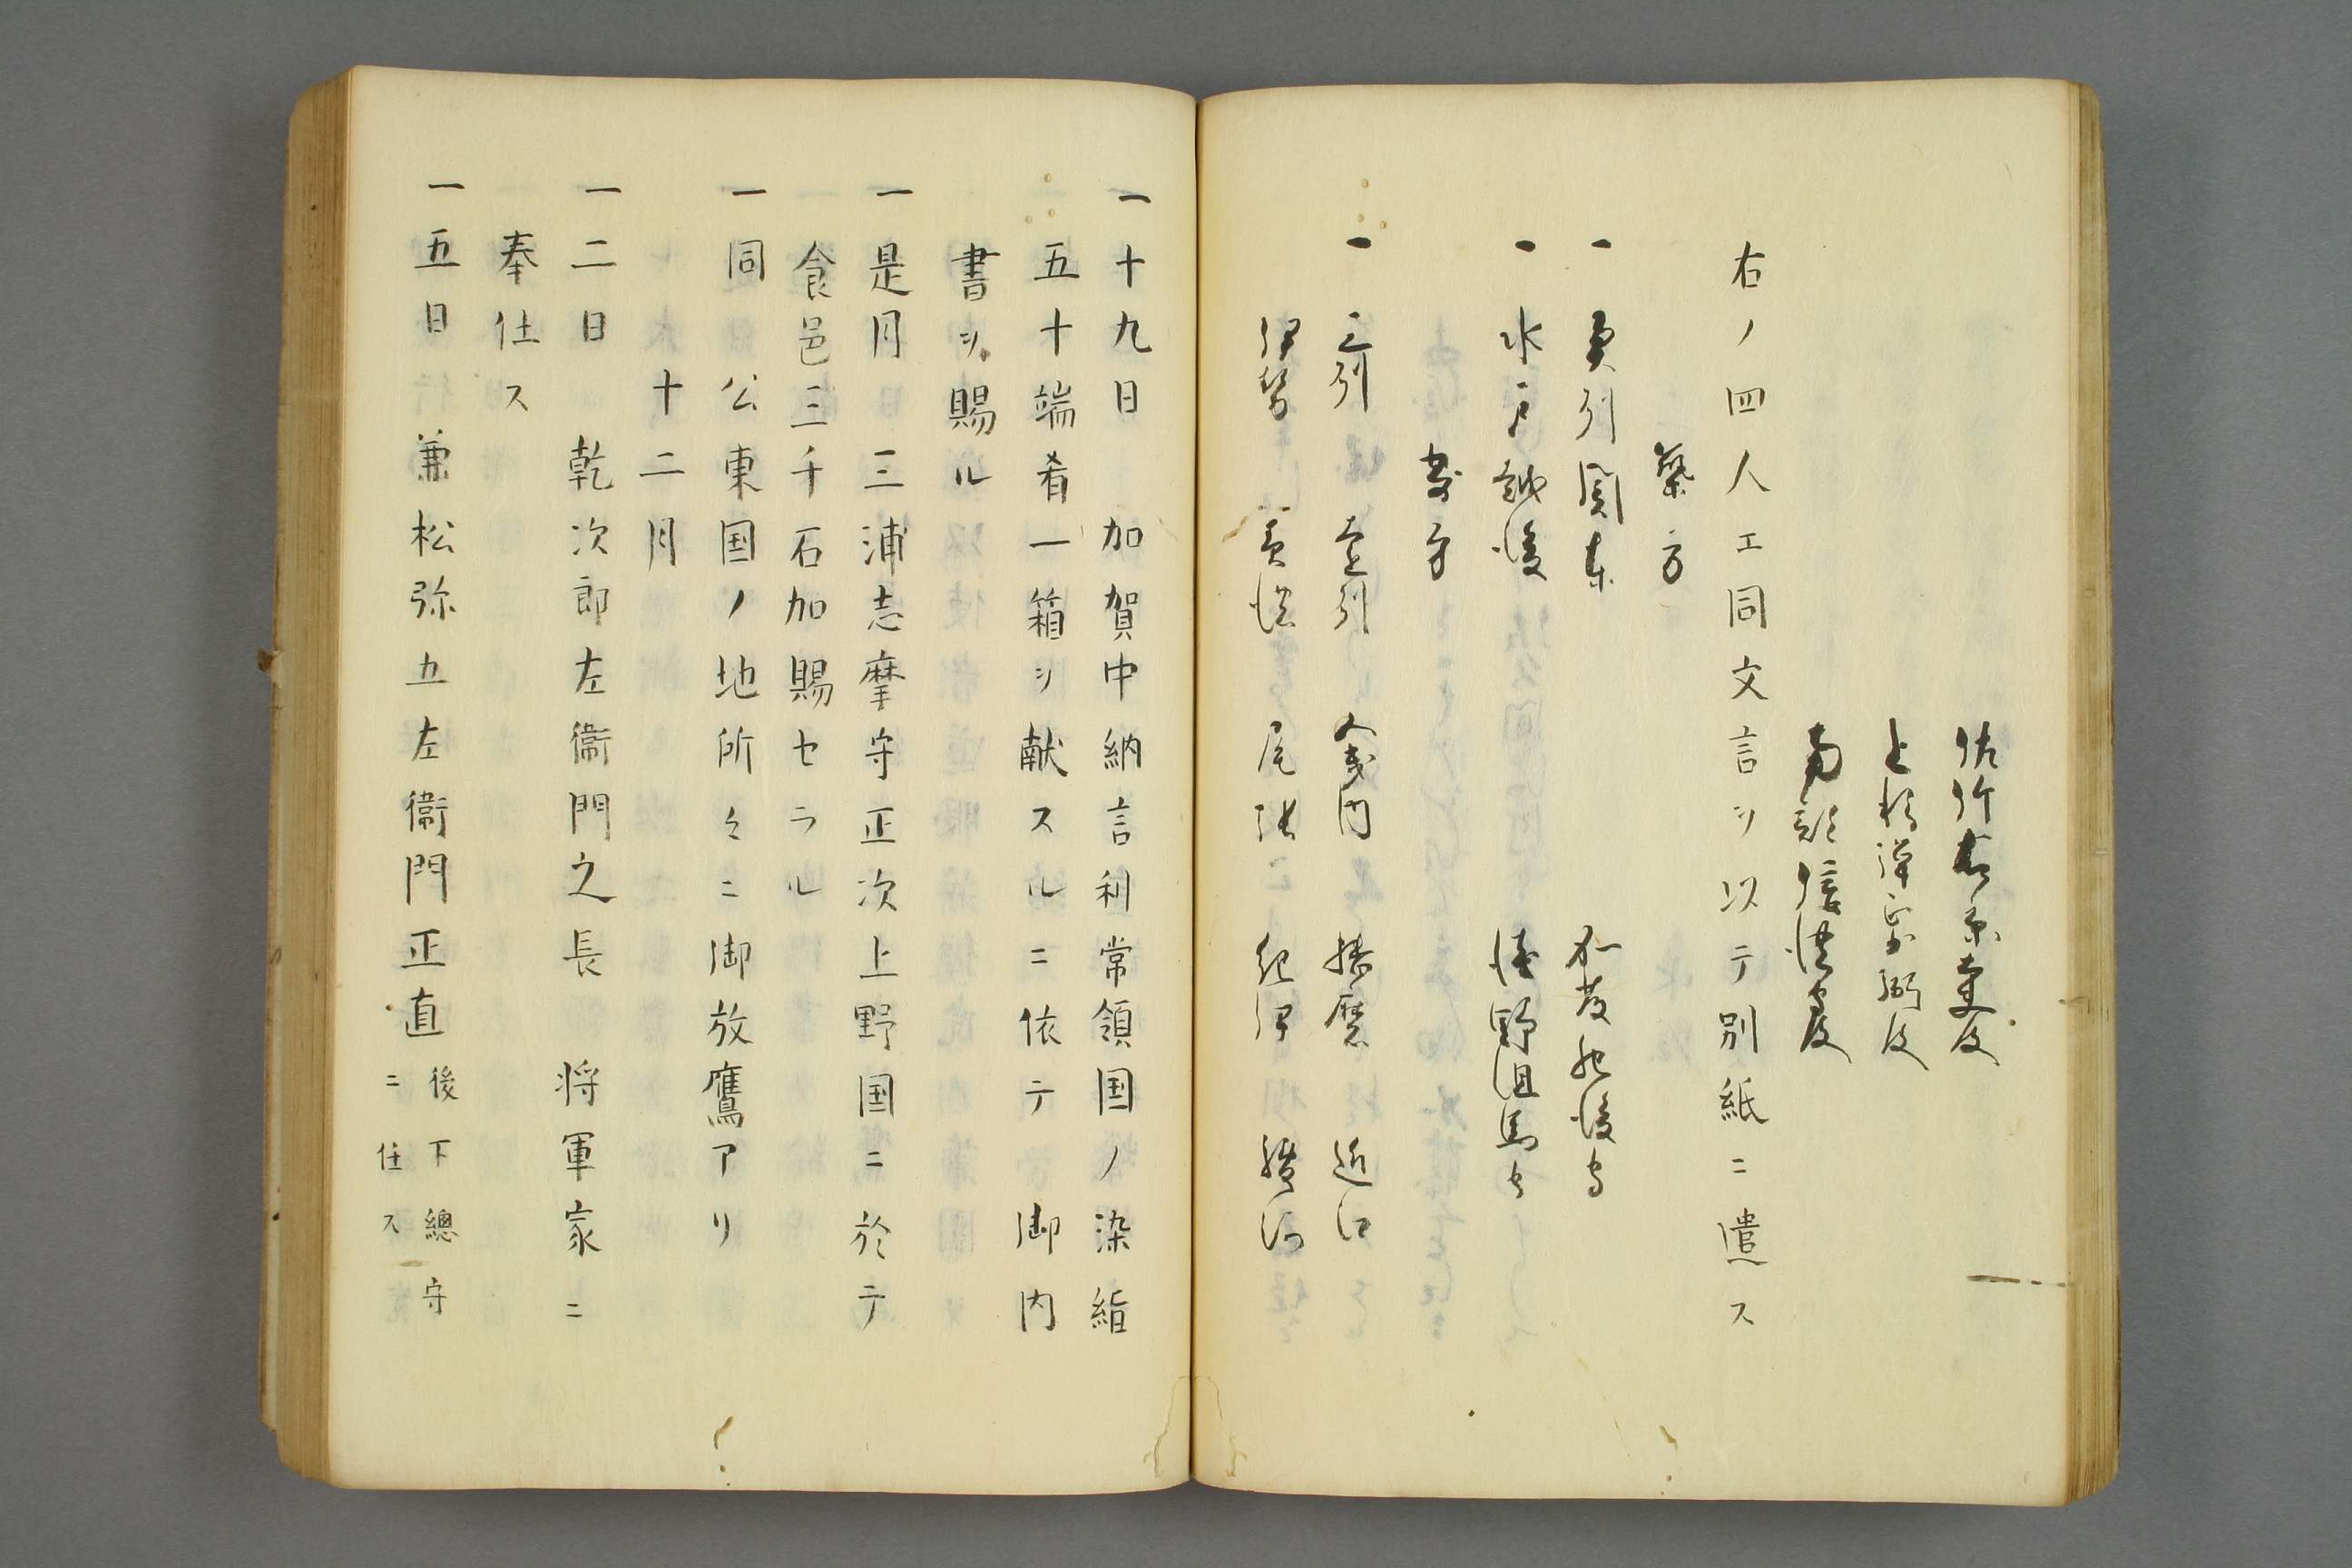 佐竹右京大夫殿
上杉弾正少弼殿
南部信濃守殿
右ノ四人エ同文言ヲ以テ別紙ニ遣ス
築方
一 奥州関東 加藤肥後守
一 水戸越後 浅野但馬守
寄方
一 三州 遠州 河内 播磨 近江
伊勢 美濃 尾張 紀伊 駿河
一十九日 加賀中納言利常領国ノ染絹
五十端肴一箱ヲ献スルニ依テ 御内
書ヲ賜ル
一是月 三浦志摩守正次上野国ニ於テ
食邑三千石加賜セラル
一同 公東国ノ地所々ニ御放鷹アリ
十二月
一二日 乾次郎左衛門之長 将軍家ニ
奉仕ス
一五日 兼松弥五左衛門正直 後下總守
ニ任ス